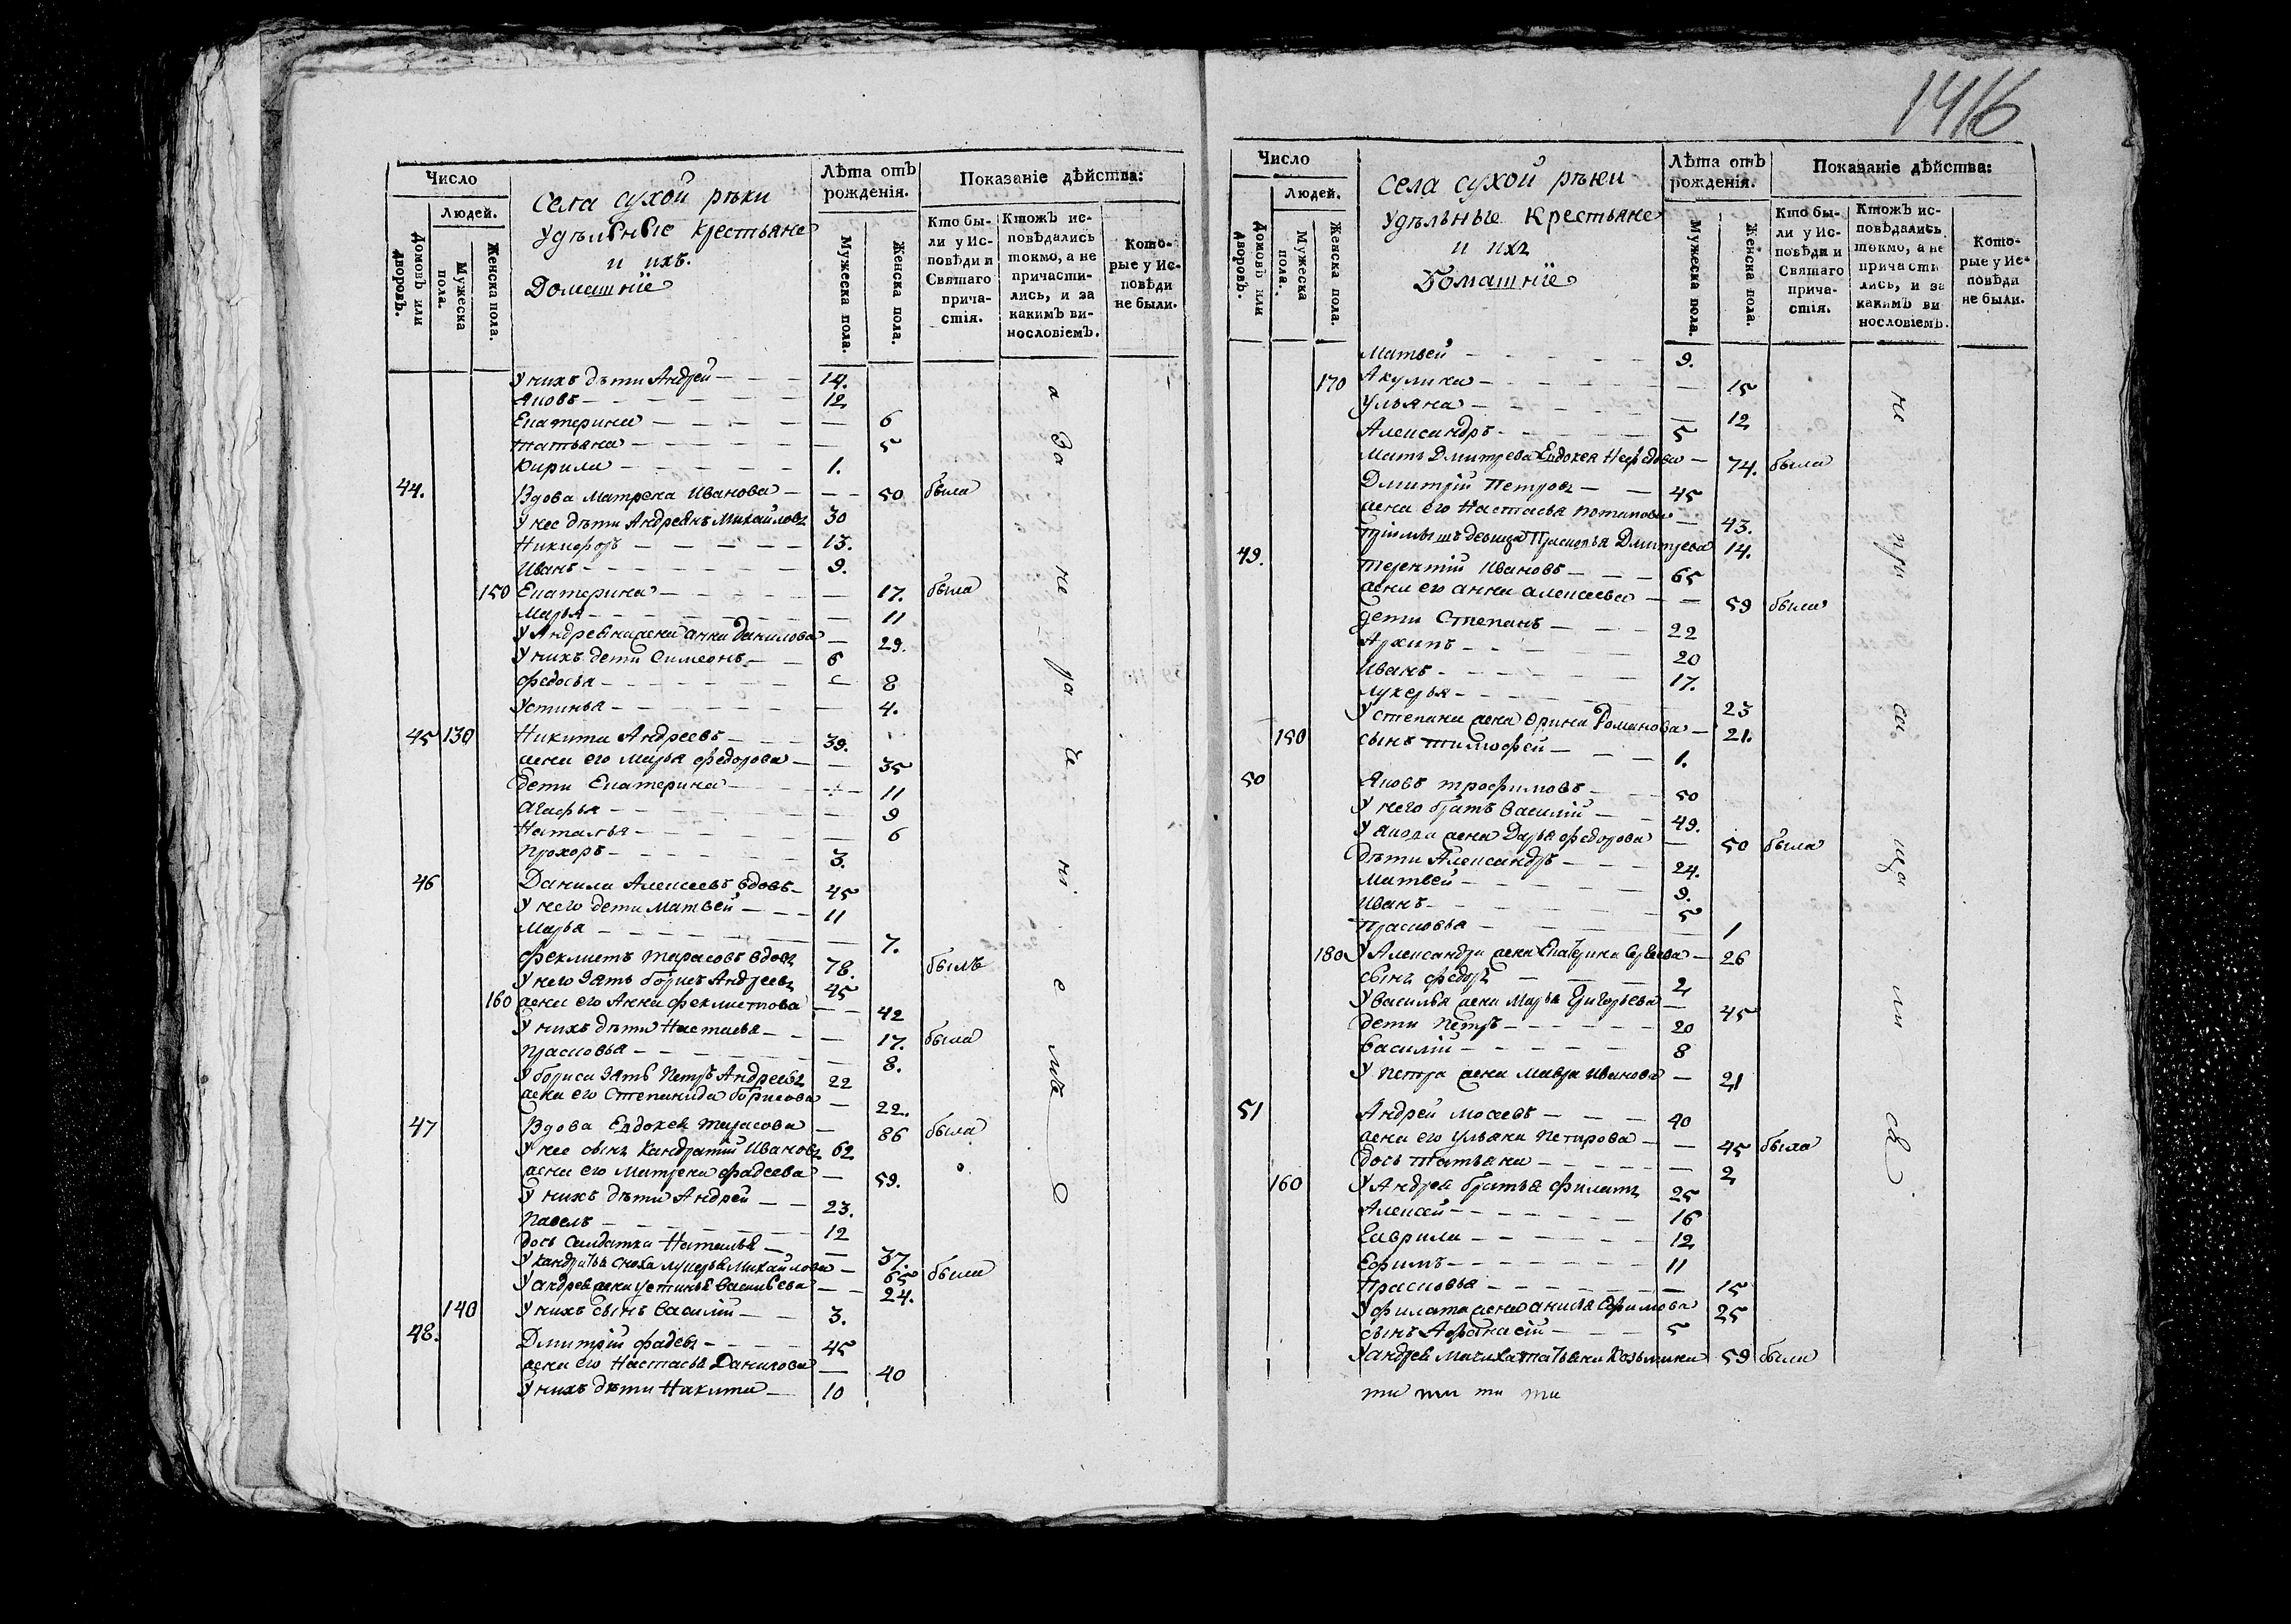 1416
Число
Людей.
Домовъ или дворовъ.
Мужеска пола.
Женска пола.
Села сухой рѣки
удѣльные крестьяне
и ихъ
Домашніе
Лѣта отъ рожденія.
Мужеска пола.
Женска пола.
Показаніе дѣйства:
Кто бы-
ли у Ис-
повѣди и
Святаго
прича-
стія.
Ктожъ ис-
повѣдались
токмо, а не
причасти-
лись, и за
какимъ ви-
нословіемъ.
Кото-
рые у Ис-
повѣди
не были.
У нихъ дѣти Андрей 14.
Яковъ 12
Екатерина 6
Татьяна 5
Кирила 1.
44. Вдова Матрена Иванова 50 была
У нее дѣти Андреянъ Михайловъ 30
Никифоръ 13.
Иванъ 9.
150 Екатерина 17. была
Марья 11
У Андреяна жена Анна Данилова 29.
У нихъ дети Симеонъ 6
Федосья 8
Устинья 4.
45 130 Никита Андреевъ 39.
жена его Марья Федорова 35
дети Екатерина 11
Агафья 9
Наталья 6
Прохоръ 3.
46 Данила Алексеевъ вдовъ 45
У него дети Матвей 11
Марья 7.
Феклистъ Тарасовъ вдовъ 78. былъ
У него зять Борисъ Андреевъ 45
160 жена его Анна Феклистова 42
У нихъ дѣти Настасья 17. была
Прасковья 8.
У Бориса зять Петръ Андреевъ 22
жена его Степанида Борисова 22.
47 Вдова Евдокея Тарасова 86 была
У нее сынъ Кандратій Ивановъ 62
жена его Матрена Фадеева 59.
У нихъ дѣти Андрей 23.
Павелъ 12
дочь салдатка Наталья 37.
У Кандратья сноха Лукерья Михайлова 65 была
У Андрея жена Устинья Васильева 24.
140 У нихъ сынъ Василій 3.
48. Дмитрій Фадеевъ 45
жена его Настасья Данилова 40
У нихъ дѣти Никита 10
а за нерачениемъ
Число
Людей.
Домовъ или дворовъ.
Мужеска пола.
Женска пола.
Села сухой рѣки
удѣльные крестьяне
и ихъ
Домашніе
Лѣта отъ рожденія.
Мужеска пола.
Женска пола.
Показаніе дѣйства:
Кто бы-
ли у Ис-
повѣди и
Святаго
прича-
стія.
Ктожъ ис-
повѣдались
токмо, а не
причасти-
лись, и за
какимъ ви-
нословіемъ.
Кото-
рые у Ис-
повѣди
не были.
Матвей 9.
170 Акулина 15
Ульяна 12
Александръ 5
Мать Дмитрева Евдокея 74. была
Дмитрій Петровъ 45
жена его Настасья Потапова 43.
девица Прасковья Дмитрева 14.
49. Терентій Ивановъ 65
жена его Анна Алексеева 59 была
дети Степанъ 22
Архипъ 20
Иванъ 17.
Лукерья 23
У Степана жена Орина Романова 21.
150 сынъ Тимофей 1.
50 Яковъ Трофимовъ 50
У него братъ Василій 49.
У Якова жена Дарья Федорова 50 была
дѣти Александръ 24.
Матвей 9.
Иванъ 5
Прасковья 1
180 У Александра жена Екатерина Сергеева 26
сынъ Федоръ 2
У Василья жена Марья Григорьева 45
дети Петръ 20
Василій 8
У Петра жена Мавра Иванова 21
51 Андрей Мосеевъ 40
жена его Ульяна Петрова 45 была
дочь Татьяна 2
160 У Андрея братья Филатъ 25
Алексей 16
Гаврила 12
Ефимъ 11
Прасковья 15
У Филата жена Анисья Ефимова 25
сынъ Афонасій 5
У Андрея мачиха Татьяна Козьмина 59 была
не при са ща ли св
ти ти ти ти